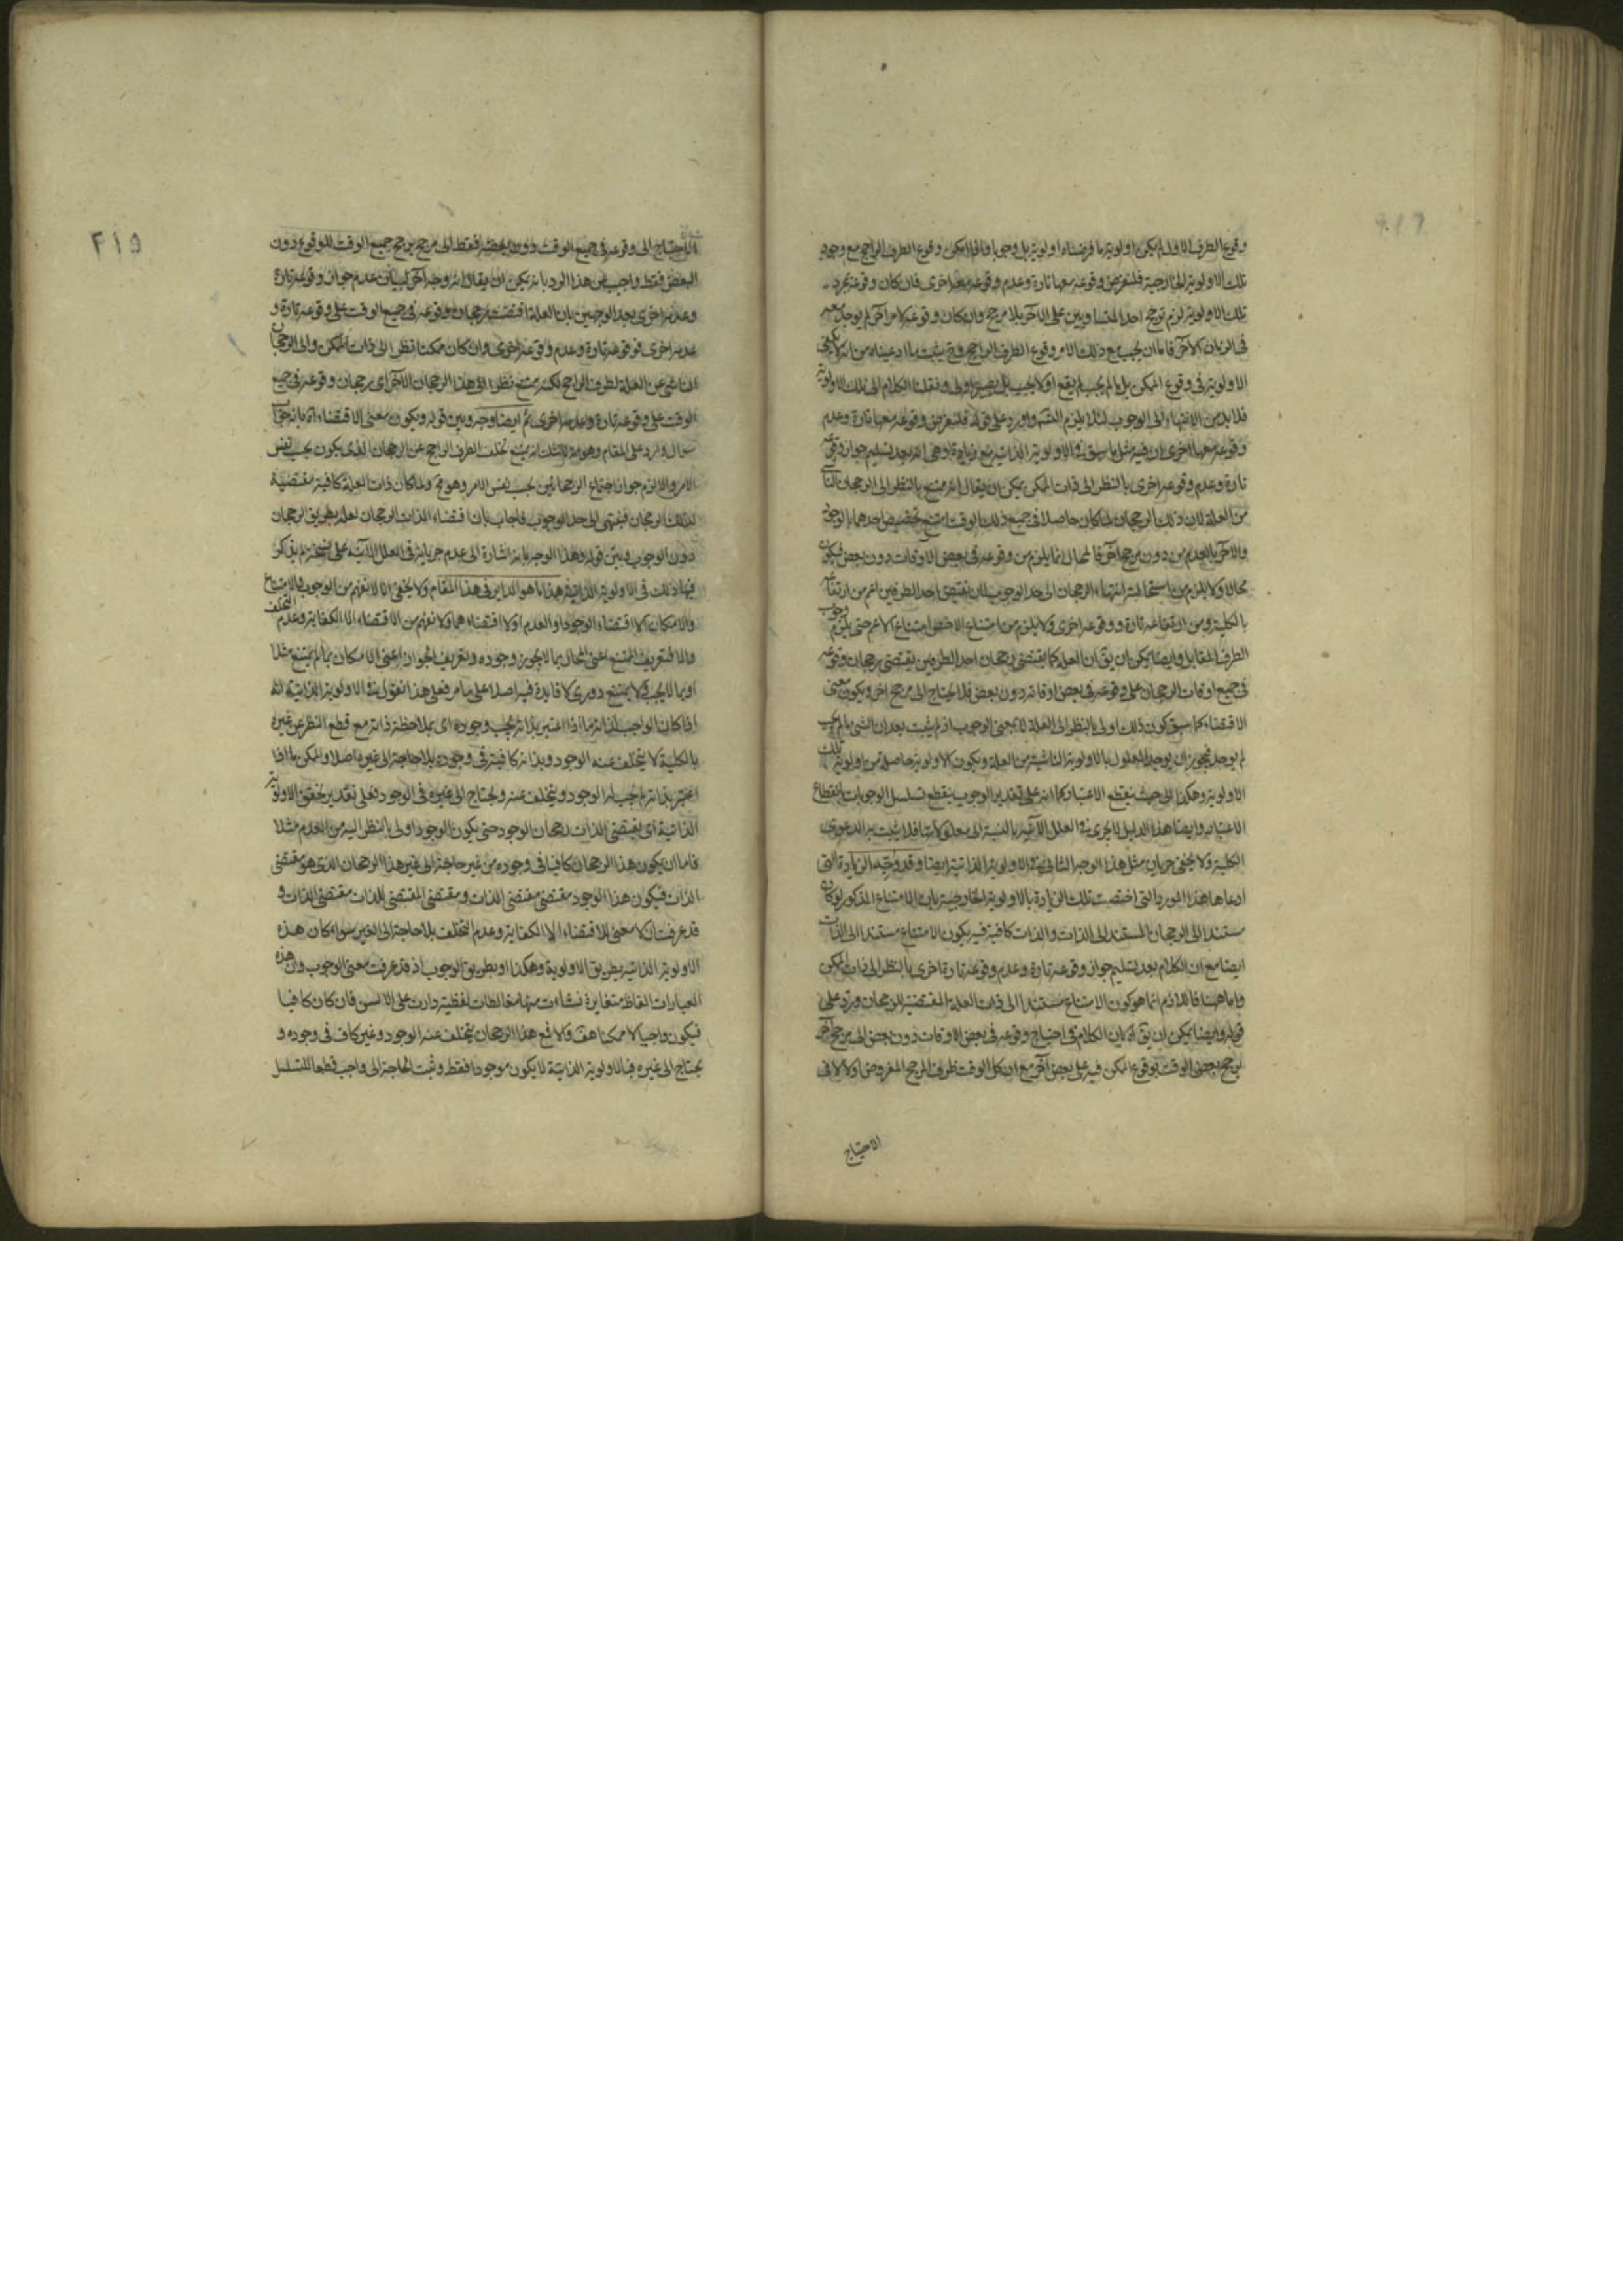 وقوع الطرف الاولى لم يكن اولوية ما فرضناه اولوية بل وجوبا واذا امكن وقوع الطرف الراجح مع وجود
تلك الاولوية الخارجية فلنفرض وقوعه معها تارة وعدم وقوعه معها اخرى فان كان وقوعه بمجرد
تلك الاولوية لزم ترجح احد المتساويين على الآخر بلا مرجح وان كان وقوعه لامر آخر لم يوجد
فى الزمان الآخر فاما ان يجب مع ذلك الامر وقوع الطرف الراجح وح يثبت ما ادعيناه من انه لا يكفى
الاولوية فى وقوع الممكن بل ما لم يجب لم يقع اولا يجب بل يصير اولى وننقل الكلام الى تلك الاولوية
فلا بد من الانتهاء الى الوجوب لئلا يلزم التسلسل واورد على قوله فلنفرض وقوعه معها تارة وعدم
وقوعه معها اخرى ان فيه مثل ما سبق فى الاولوية الذاتية مع زيادة وهى انه بعد تسليم جواز وقوعه
تارة وعدم وقوعه اخرى بالنظر الى ذات الممكن يمكن ان يقال انه ممتنع بالنظر الى الرجحان الناشى
من العلة لان ذلك الرجحان لما كان حاصلا فى جميع ذلك الوقت امتنع تخصيص احدهما بالوجود
والآخر بالعدم من دون مرجح آخر فالمحال انما يلزم من وقوعه فى بعض الاوقات دون بعض فيكون
محالا ولا يلزم من استحالته انتهاء الرجحان الى حد الوجوب لان نقيض احد الطرفين اعم من ارتفاعه
بالكلية ومن ارتفاعه تارة ووقوعه اخرى ولا يلزم من امتناع الاخص امتناع الاعم حتى يلزم وجوب
الطرف المقابل وايضا يمكن ان يق ان العلة كما يقتضى رجحان احد الطرفين يقتضى رجحان وقوعه
فى جميع اوقات الرجحان على وقوعه فى بعض اوقاته دون بعض فلا يحتاج الى مرجح اخر ويكون معنى
الاقتضاء كما سبق كون ذلك اولى بالنظر الى العلة لا بمعنى الوجوب اذ لم يثبت بعد ان الشئ ما لم يجب
لم يوجد فيجوز ان يوجد المعلول بالاولوية الناشية من العلة ويكون الاولوية حاصلة من اولوية تلك
الاولوية وهكذا الى حيث ينقطع الاعتبار كما انه على تقدير الوجوب ينقطع تسلسل الوجوبات بانقطاع
الاعتبار وايضا هذا الدليل لا يجرى فى العلل الآنية بالنسبة الى معلولاتها فلا يثبت به الدعوى
الكلية ولا يخفى جريان مثل هذا الوجه الثانى فى الاولوية الذاتية ايضا وقد وجه الزيادة التى
ادعاها هذا المورد التى اختصت تلك الزيادة بالاولوية الخارجية بان الامتناع المذكور لو كان
مستندا الى الرجحان المستند الى الذات والذات كافية فيه يكون الامتناع مستندا الى الذات
ايضا مع ان الكلام بعد تسليم جواز وقوعه تارة وعدم وقوعه تارة اخرى بالنظر الى ذات الممكن
واما ههنا فاللازم انما هو كون الامتناع مستندا الى ذات العلة المقتضية للرجحان ويرد على
قوله وايضا يمكن ان يق اه بان الكلام فى احتياج وقوعه فى بعض الاوقات دون بعض الى مرجح آخر
يرجح بعض الوقت بوقوع الممكن فيه على بعض آخر مع ان كل الوقت ظرف المرجح المفروض اولا لا فى
الاحتياج
٢١٥
الاحتياج الى وقوعه فى جميع الوقت دون بعضه فقط الى مرجح يرجح جميع الوقت للوقوع دون
البعض فقط واجيب عن هذا الرد بانه يمكن ان يقال انه وجه آخر لبيان عدم جواز وقوعه تارة
وعدمه اخرى بعد الوجهين بان العلة اقتضت رجحان وقوعه فى جميع الوقت على وقوعه تارة و
عدمه اخرى فوقوعه تارة وعدم وقوعه اخرى وان كان ممكنا نظرا الى ذات الممكن والى الرجحان
الناشى عن العلة لطرف الراجح لكنه يمتنع نظرا الى هذا الرجحان الآخر اى رجحان وقوعه فى جميع
الوقت على وقوعه تارة وعدمه اخرى ثم ايضا وجه وبين قوله ويكون معنى الاقتضاء آه بانه جواب
سؤال وارد على المقام وهو انه لا شك انه يمتنع تخلف الطرف الراجح عن الرجحان الذى يكون بحسب نفس
الامر والا لزم جواز اجتماع الرجحانين بحسب نفس الامر وهو مح ولما كان ذات العلة كافية مقتضية
لذلك الرجحان فينتهى الى حد الوجوب فاجاب بان اقتضاء الذات الرجحان لعله بطريق الرجحان
دون الوجوب وبين قوله وهذا الوجه بانه اشارة الى عدم جريانه فى العلل الآنية على نسخة لم يذكر
فيها ذلك فى الاولوية الذاتية هذا ما هو الداير فى هذا المقام ولا يخفى انا لا نفهم من الوجوب والامتناع
والامكان الا اقتضاء الوجود او العدم او لا اقتضاءهما ولا نفهم من الاقتضاء الا الكفاية وعدم التخلف
والا فتعريف الممتنع اعنى المحال بما لا يجوز وجوده وتعريف الجواز اعنى الامكان بما لم يمتنع مثلا
او بما لا يجب ولا يمتنع دورى لا فايدة فيه اصلا على ما مر فعلى هذا نقول فى الاولوية الذاتية انه
اذا كان الواجب لذاته ما اذا اعتبر بذاته يجب وجوده اى بملاحظة ذاته مع قطع النظر عن غيره
بالكلية لا يتخلف عنه الوجود وبذاته كافية فى وجوده بلا حاجة الى غيره اصلا والممكن ما اذا
اعتبر بذاته لم يجب له الوجود ويتخلف عنه ويحتاج الى غيره فى الوجود فعلى تقدير تحقق الاولوية
الذاتية اى يقتضى الذات رجحان الوجود حتى يكون الوجود اولى بالنظر اليه من العدم مثلا
فاما ان يكون هذا الرجحان كافيا فى وجوده من غير حاجة الى غير هذا الرجحان الذى هو مقتضى
الذات فيكون هذا الوجود مقتضى مقتضى الذات ومقتضى المقتضى للذات مقتضى الذات و
قد عرفت ان لا معنى للاقتضاء الا الكفاية وعدم التخلف بلا حاجة الى الغير سواء كان هذه
الاولوية الذاتية بطريق الاولوية وهكذا او بطريق الوجوب اذ قد عرفت معنى الوجوب وان هذه
العبارات الفاظ متغايرة نشاءت منها مغالطات لفظية دارت على الالسن فان كان كافيا
فيكون واجبا لا ممكنا هف والا فمع هذا الرجحان يتخلف عنه الوجود وغير كاف فى وجوده و
يحتاج الى غيره فبالاولوية الذاتية لا يكون موجودا فقط وثبت الحاجة الى واجب قطعا للتسلسل